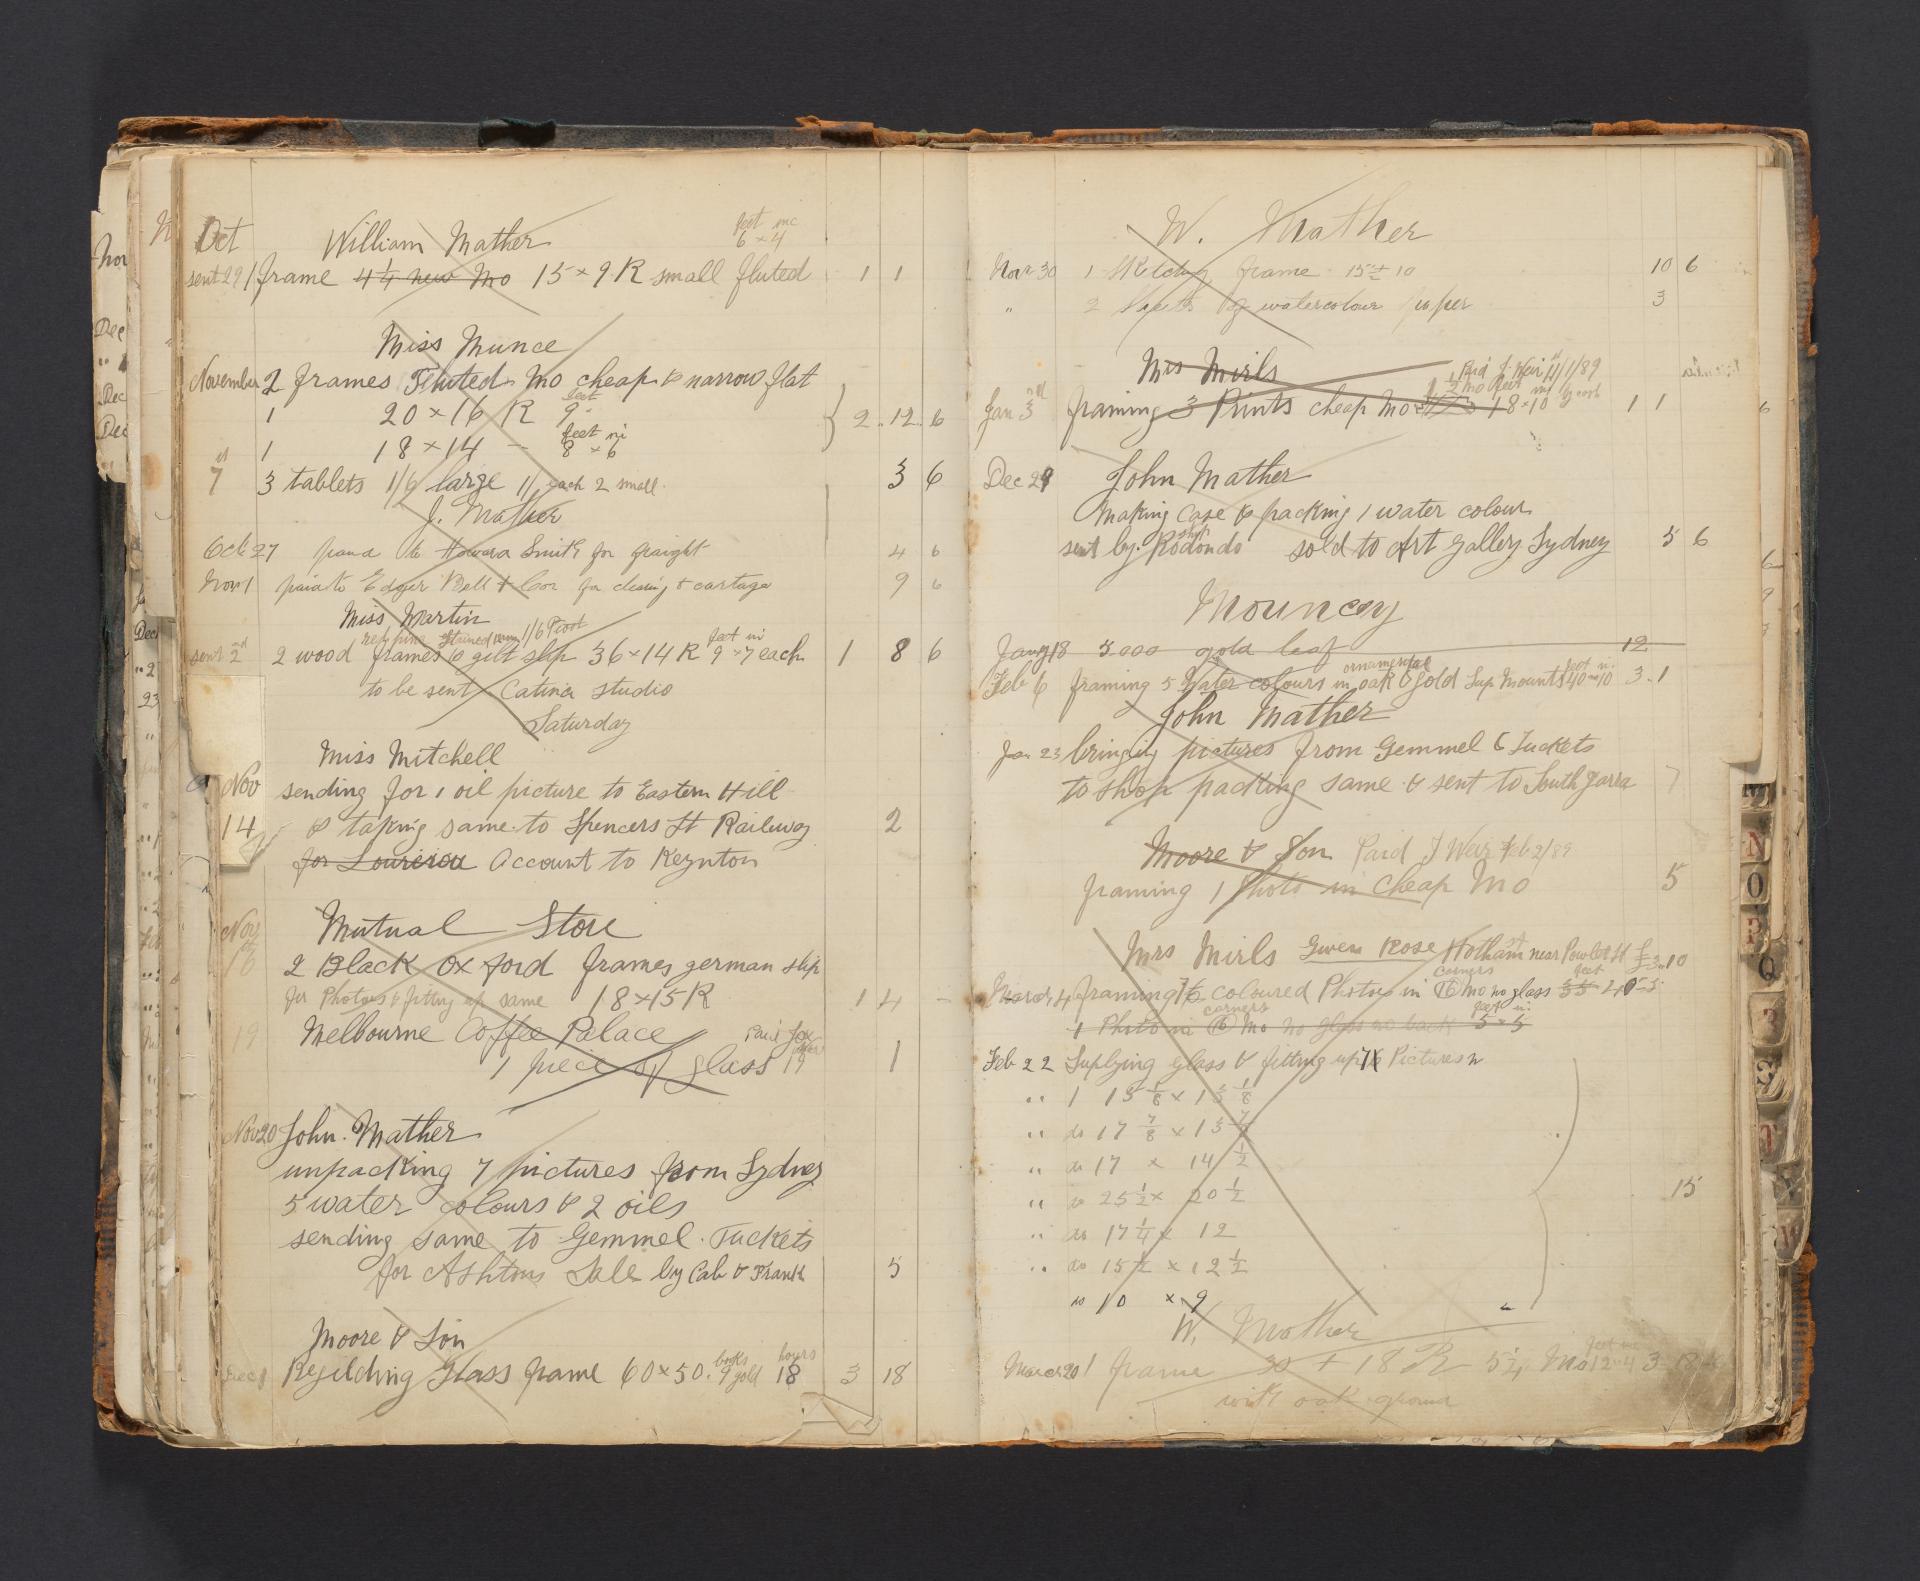 Oct William Mather feet inc 6 × 4
sent 29 1 frame 4¼ new Mo 15 × 9 R small fluted 1 1
Miss Munce
November 2 frames Fluted Mo cheap & narrow flat
1 20 × 16 R 9 feet 2 . 12 . 6
1 18 × 14 – feet in 8 × 6
7 3 tablets 1/6 large 1/ each 2 small 3 6
J. Mather
Oct 27 paid to Howard Smith for fraight 4 6
Nov 1 paid to Edger Bell & Cor for clearing & cartage 9 6
Miss Martin
sent 2nd 2 wood frames & gilt slip 36 × 14 R feet in 9 × 7 each 1 8 6
to be sent Catina studio
Saturday
Miss Mitchell
Nov sending for 1 oil picture to Eastern Hill
14 & taking same to Spencers St Railway 2
for Loureiro Account to Keynton
Mutual Store
Nov 16 2 Black Oxford frames german slip
for Photoes & fitting up same 18 × 15 R 1 4 –
19 Melbourne Coffee Palace Paid
1 piece of glass 19 1
Nov 20 John Mather
unpacking 7 pictures from Sydney
5 water colours & 2 oils
sending same to Gemmel Tuckets
for Ashtons Sale by Cab & Frank 5
Moore & Son
Dec 1 Regilding Glass frame 60 × 50 . books 9 gold hours 18 3 18
W. Mather
Nov 30 1 Sketching frame 15½ × 10 10 6
" 2 Sheets of watercolour paper 3
Mrs Mirls Paid J. Weir 11/1/89
Jan 3rd framing 3 Prints cheap Mo 18 × 10 1 1
Dec 29 John Mather
Making Case & packing 1 water colour
sent by ship Rodondo sold to Art Gallery Sydney 5 6
Mouncey
Jany 18 3000 gold leaf 12
Feb 6 framing 5 Water colours in ornamental oak & Gold Sup Mounts feet in 40 × 10 3 . 1
John Mather
Jan 23 bringing pictures from Gemmel & Tuckets
to shop packing same & sent to South Yarra 7
Moore & Son Paid J Weir Feb 2/89
framing 1 Photo in Cheap Mo 5
Mrs Mirls Given Rose Hotham near Powlet St £3 . 10
March 4 framing 7 coloured Photos in corners Mo no glass feet
1 Photo in corners Mo no glass no back feet in 5 × 5
Feb 22 Suplying glass & fitting up 7 Pictures
" 1 15 1/8 × 13 1/8
" do 17 7/8 × 13 7/8
" do 17 × 14 ½
" do 25 ½ × 20 ½ 15
" do 17 ¼ × 12
" do 15 ½ × 12 ½
do 10 × 9
W. Mather
March 20 1 frame 30 + 18 R 5¼ Mo 12 × 4 3 18
with oak ground
M
N
O
P
Q
T
W